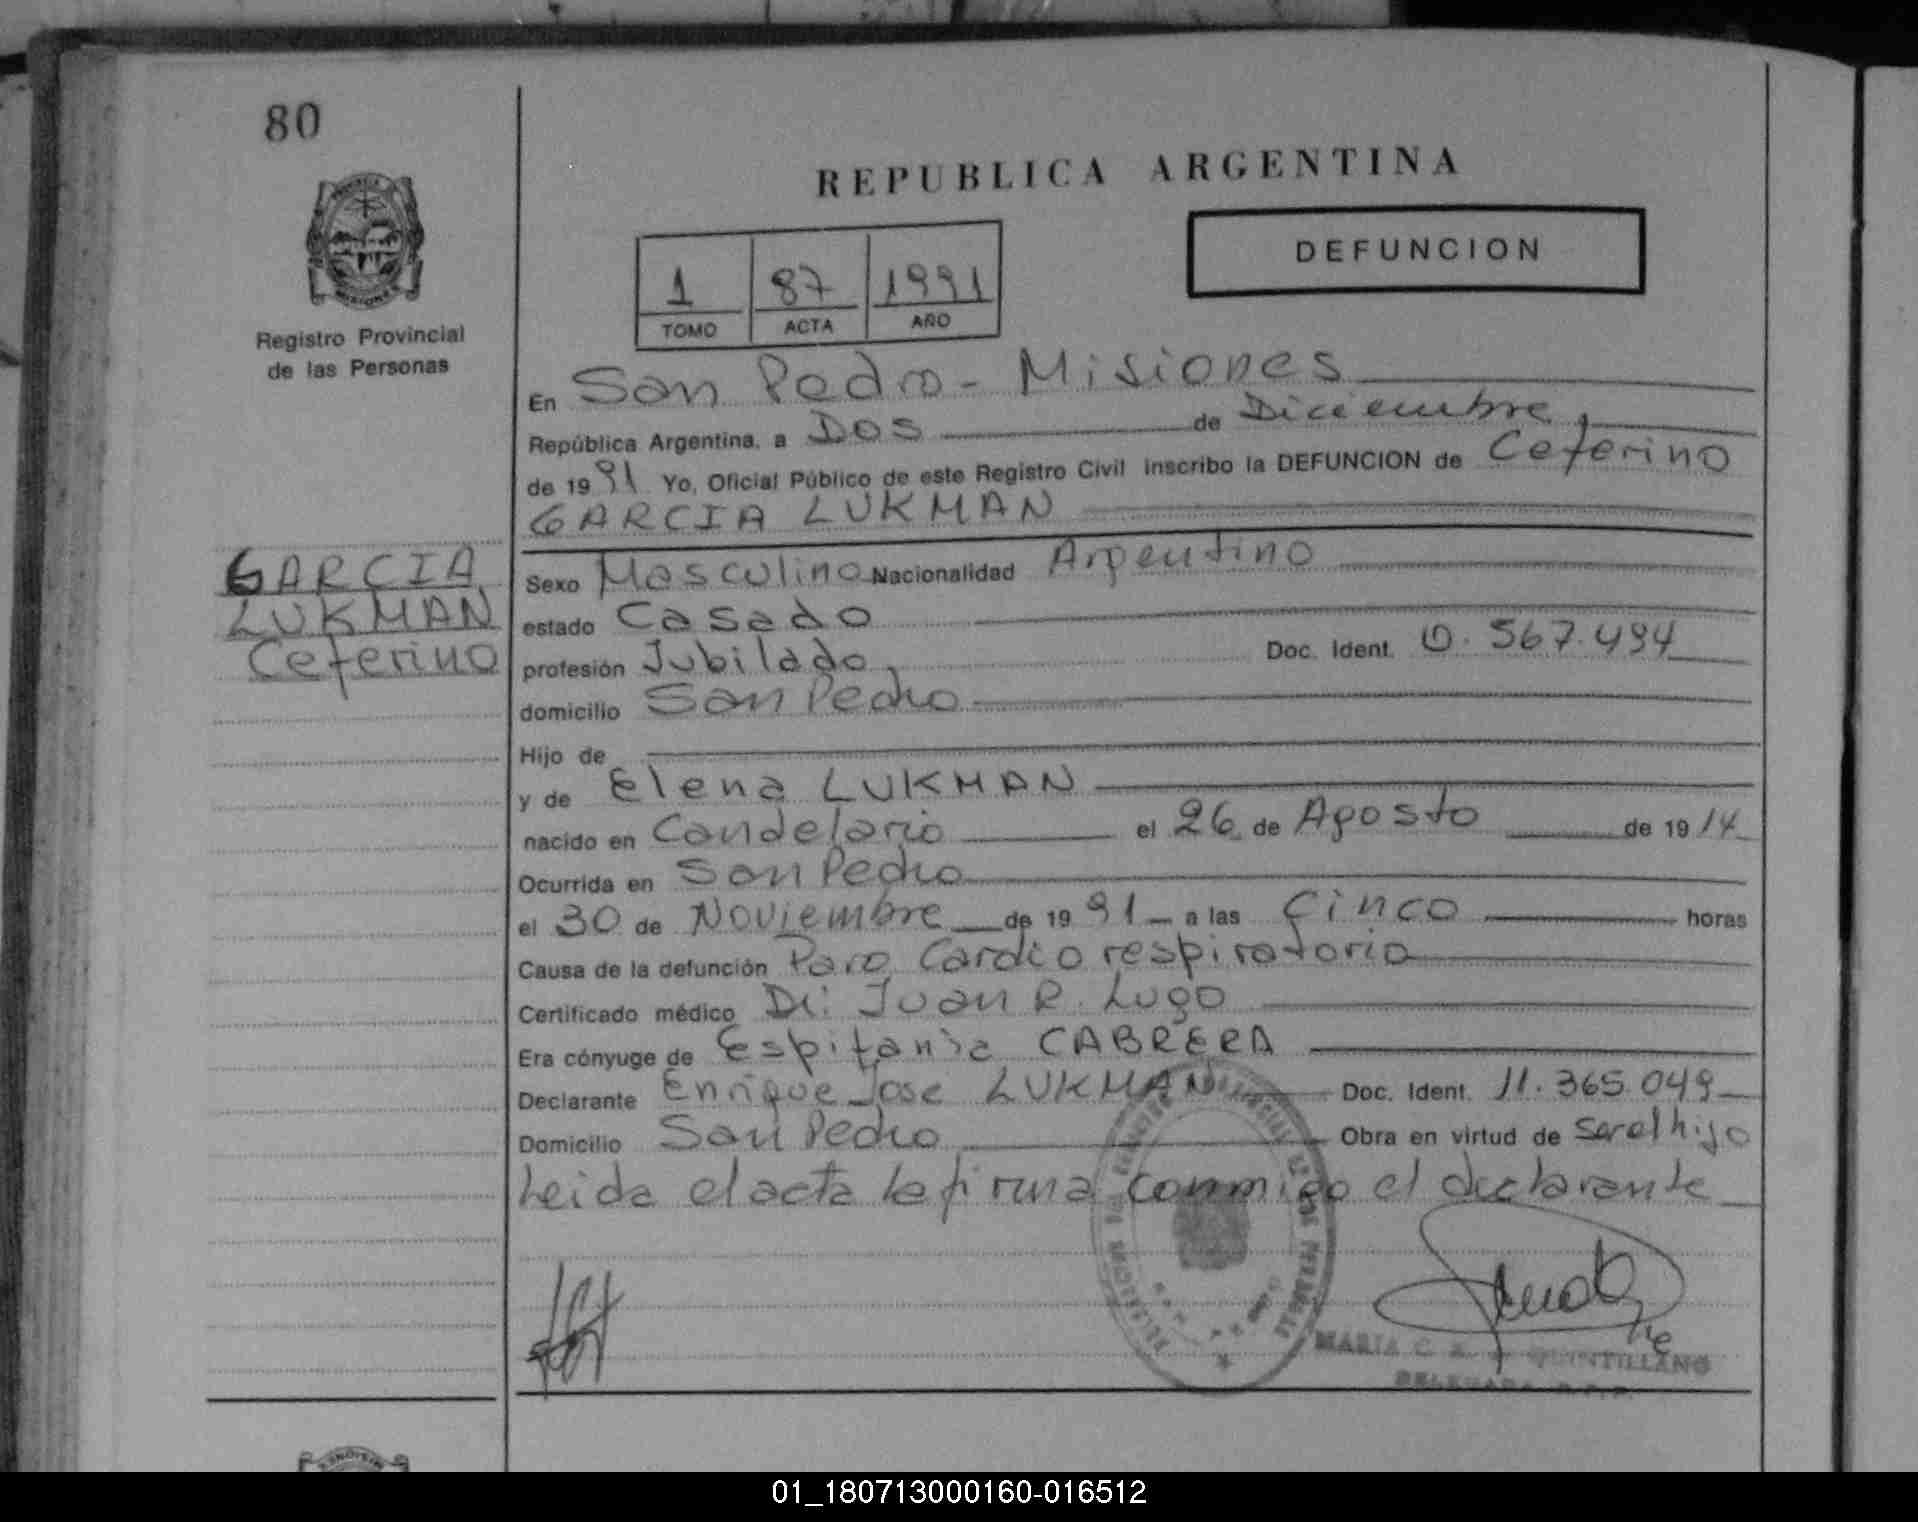 80
REPUBLICA ARGENTINA
DEFUNCION
1 87 1991
TOMO ACTA AÑO
MISIONES
Registro Provincial
de las Personas
En San Pedro - Misiones
República Argentina, a Dos de Diciembre,
de 1991 Yo, Oficial Público de este Registro Civil inscribo la DEFUNCION de Ceferino
GARCIA LUKMAN
GARCIA
LUKMAN
Ceferino
Sexo Masculino Nacionalidad Argentino
estado Casado
profesión Jubilado, Doc. Ident. 0.567.494
domicilio San Pedro
Hijo de
y de Elena LUKMAN
nacido en Candelaria el 26 de Agosto de 1914
Ocurrida en San Pedro
el 30 de Noviembre de 1991 a las Cinco horas
Causa de la defunción Paro Cardio respiratorio
Certificado médico Dr: Juan R. Lugo
Era cónyuge de CABRERA
Declarante Enrique José LUKMAN Doc. Ident. 11.365.049
Domicilio San Pedro Obra en virtud de ser el hijo
Leida el acta la firma conmigo el declarante
MARIA C. A. QUINTILLANO
01_180713000160-016512